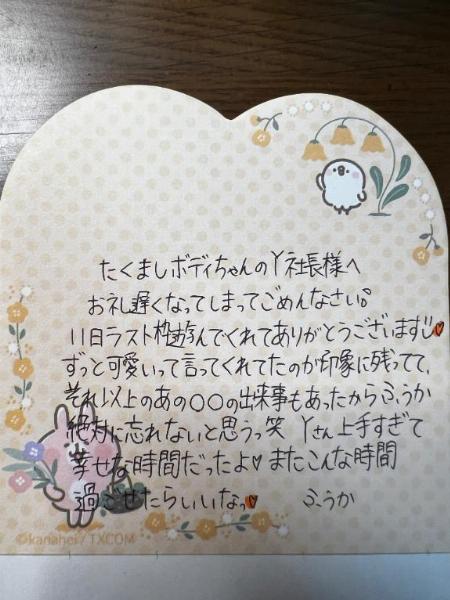 たくましボディちゃんのY社長様へ
お礼遅くなってしまってごめんなさい。
11日ラスト枠遊んでくれてありがとうございます
ずっと可愛いって言ってくれてたのが印象に残ってて、
それ以上のあの○○の出来事もあったからふうか
絶対に忘れないと思うっ笑 Yさん上手すぎて
幸せな時間だったよ♥ またこんな時間
過ごせたらいいなっ♥ ふうか
©kanahei / TXCOM